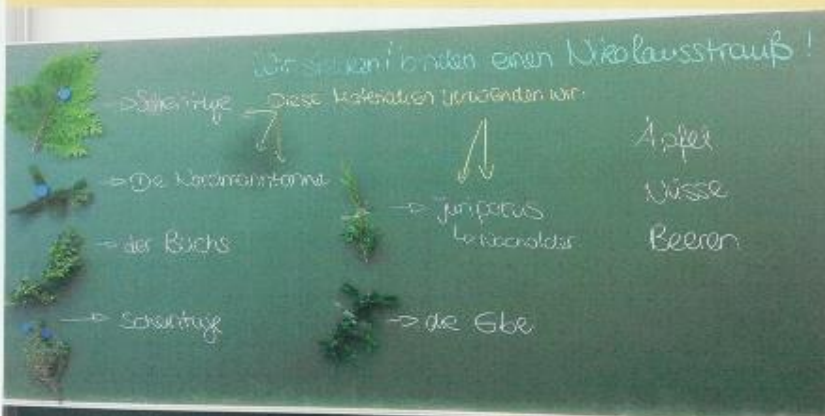 Wir stecken/binden einen Nikolausstrauß!
Diese Materialien verwenden wir:
→ Scheinzype
→ Die Nordmanntanne
→ der Buchs
→ Scheinzype
→ Juniperus
↳ Wacholder
→ die Eibe
Äpfel
Nüsse
Beeren